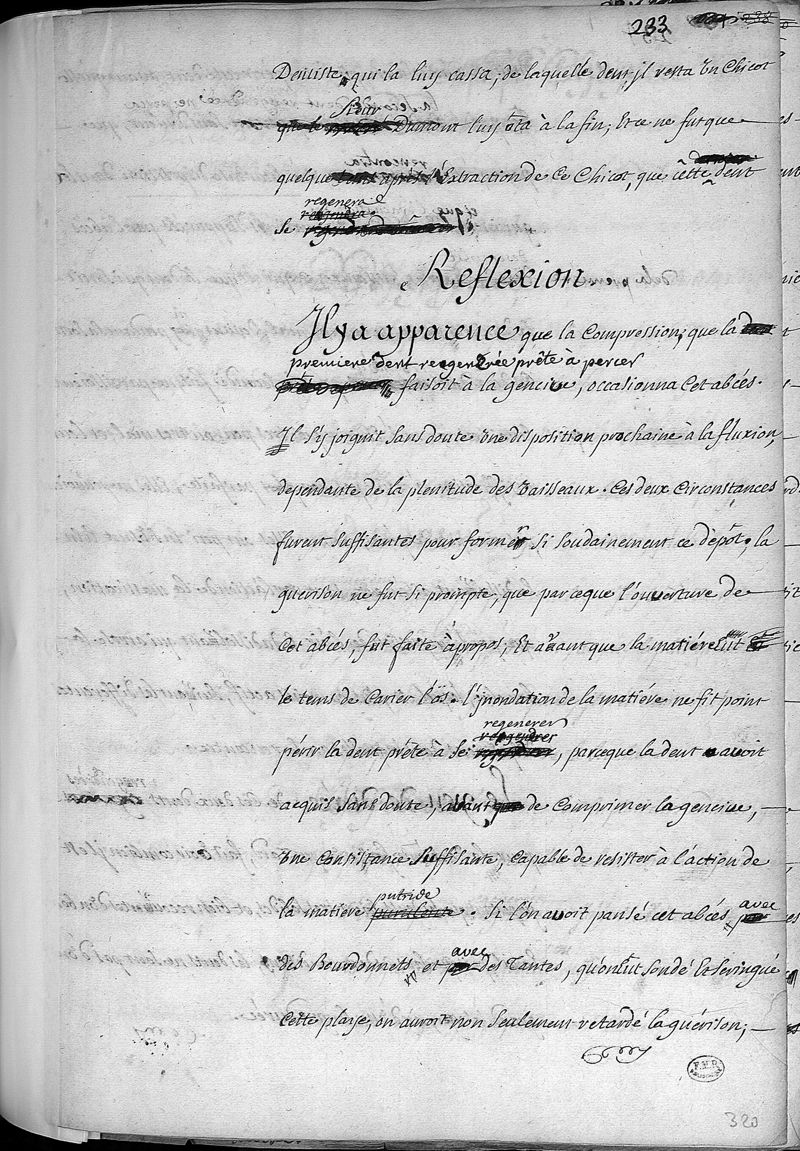 233
Dentiste, qui la luy cassa; de laquelle dent, il resta un Chicot
Sieur
que le Dumont luy ôta à la fin; Et ce ne fut que
remontra
quelque après l'Extraction de Ce Chicot, que cette dent
regenera
regendra
se
Reflexion.
Il y a apparence que la Compression, que la
premiere dent regenerée prête à percer
faisoit à la gencive, occasionna Cet abcés.
Il s'y joignit sans doute une disposition prochaine à la fluxion,
dependante de la plenitude des Vaisseaux. Ces deux Circonstances
furent suffisantes pour former si soudainement ce dépôt; la
guérison ne fut si prompte, que parceque l'ouverture de
Cet abcés, fut faite à propos, Et avant que la matiére eut
le tems de Carier l'os. l'jnondation de la matiére ne fit point
regenerer
regendrer
périr la dent prête à se , parceque la dent avoit
acquis sans doute, avant que de Comprimer la gencive,
une Consistance suffisante, capable de resister à l'action de
putride avec
la matiére purulente. Si l'on avoit pansé cet abcés, par
avec
des Bourdonnets et par des Tantes, qu'on eut sondé Et seringué
Cette playe, on auroit non seulement retardé la guérison;
320